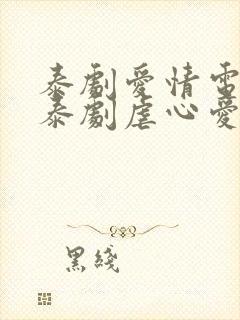 泰劇愛情電
泰劇虐心愛
黑綫